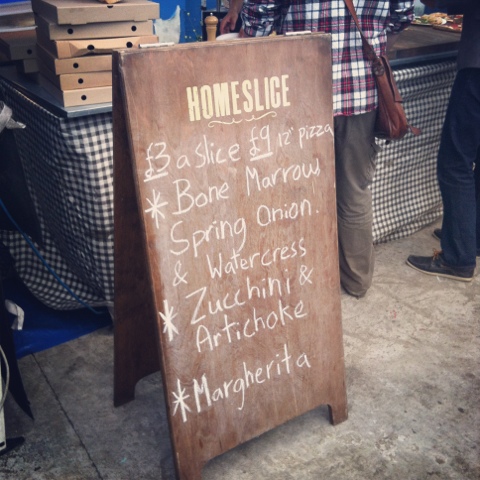 HOMESLICE
£3 a slice £9 12" pizza
* Bone Marrow,
Spring Onion.
& Watercress
* Zucchini &
Artichoke
* Margherita